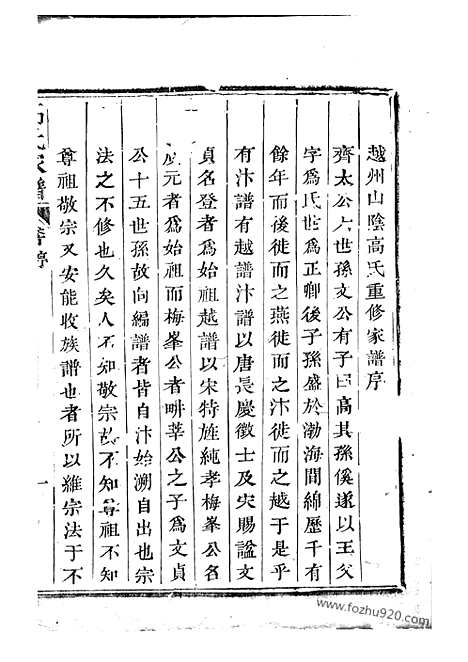 越州山陰高氏重修家譜序
齊太公六世孫文公有子曰高其孫傒遂以王父
字爲氏世爲正卿後子孫盛於渤海間綿歷千有
餘年而後徙而之燕徙而之汴徙而之越于是乎
有汴譜有越譜汴譜以唐長慶徵士及史賜諡文
貞名登者爲始祖越譜以宋特旌純孝梅峯公名
應元者爲始祖而梅峯公者畊莘公之子爲文貞
公十五世孫故向編譜者皆自汴始溯自出也宗
法之不修也久矣人不知敬宗故不知尊祖不知
尊祖敬宗又安能收族譜也者所以維宗法于不
高氏家譜 舊序 一
www.fozhu920.com